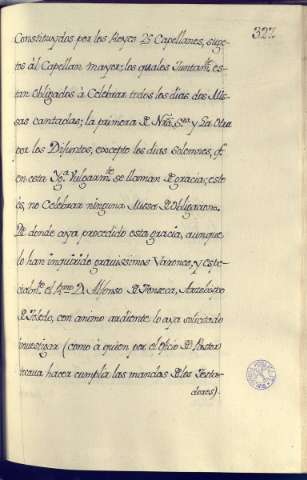 327
Constituydos por los Reyes 25 Capellanes, suge-
tos àl Capellan mayor; los quales Juntamte. es-
tan obligados à Celebrar todos los dias dos Mi-
sas cantadas; la primera de Ntrâ. Sra. y la otra
por los Difuntos, excepto los dias solemnes, q̃
en esta Yga. Vulgarmte. se llaman de gracia; esto
es, no Celebrar ninguna Missa de Obligacion.
De donde aya procedido esta gracia, aunque
lo han inquirido gravissimos Varones, y espe-
cialmte. el Yllmo. D. Alfonso de Fonseca, Arzobispo
de Toledo, con animo ardiente lo aya solicitado
investigar (como à quien por el oficio de Pastor
tocava hacer cumplir las mandas de los Testa-
dores)